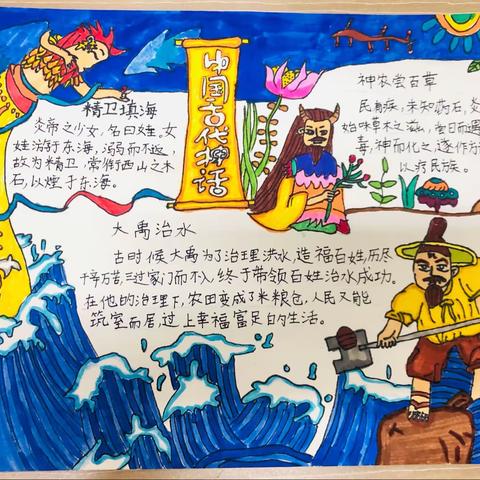 中国古代神话
精卫填海
炎帝之少女,名曰娃,女
娃游于东海,溺而不返,
故为精卫,常衔西山之木
石,以堙于东海。
神农尝百草
民有疾,未知药石,炎
始味草木之滋,
毒,神而化之,遂作方
以疗民疾。
大禹治水
古时候大禹为了治理洪水,造福百姓,历尽
千辛万苦,三过家门而不入,终于带领百姓治水成功。
在他的治理下,农田变成了米粮包,人民又能
筑室而居,过上幸福富足的生活。